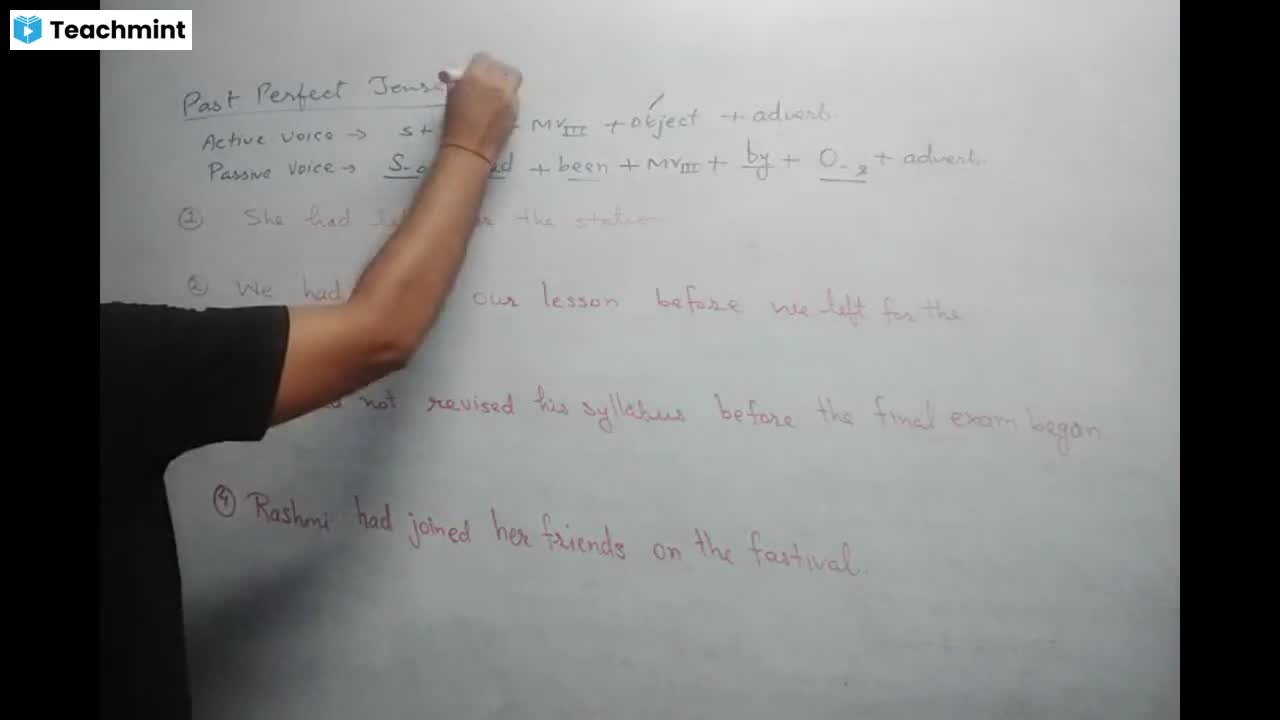 Teachmint
Past Perfect Tense
Active voice → s + MVIII + object + adverb.
Passive voice → S-o + been + MVIII + by + O-s + adverb.
① She had the station
② We had our lesson before we left for the
not revised his syllabus before the final exam began
④ Rashmi had joined her friends on the fastival.